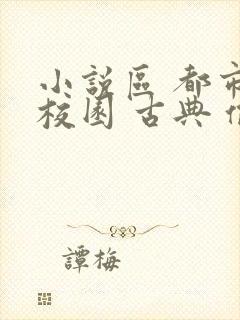 小說區 都市
校園 古典
譚梅